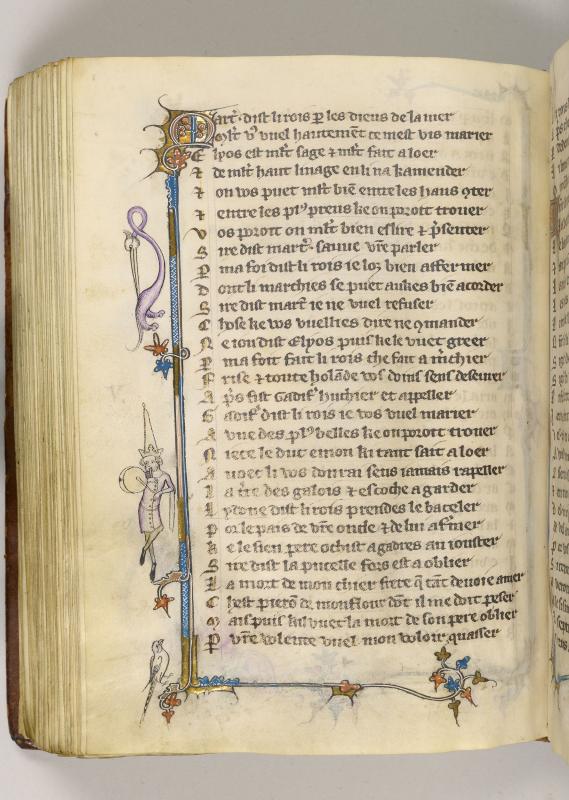 Marт̃. dist li rois p̲ les dieus de la mer
Mlt̃ v᷒ vuel hautemēt ce mest vis marier
Elyos est mlt̃ sage ⁊ mlt̃ fait a loer
⁊ de mlt̃ haut linage en li na kamender
⁊ on wos puet mlt̃ biē entre les haus 9ter
⁊ entre les pl᷒ preus ke on porott trouer
Vos porott on mlt̃ bien eslire ⁊ p̃senter
Sire dist marт̃. sauue vr̃e parler
P ma foi dist li rois ie lo bien affermer
Dont li marchies se puet aukes biē acorder
Sire dist marт̃ ie ne vuel refuser
Chose ke wos vuellies dire ne 9mander
Ne ion dist Elyos puis kele vuet greer
P ma foit fait li rois che fait a m̃chier
Frise ⁊ toute holāde vos doins sens deseurer
Ap̃s fist Gadif᷒ huchier et appeller
Gadif᷒ dist li rois ie vos vuel marier
A vne des pl᷒ belles ke on porott trouer
Niece le duc emon ki tant fait a loer
Auoec li vos donrai sens iamais rapeller
La tr̃e des galois ⁊ escoche a garder
Lydone dist li rois prendes le baceler
Por le pais de vr̃e oncle ⁊ de lui afr̃mer
Ke le sien pere ochist a gadres au iouster
Sire dist la pucelle fors est a oblier
La mort de mon chier frere q̃ tāt deuoie amer
Chest pierō de monflour dōt il me doit peser
Mais puis kil vuet la mort de son pere oblier
P vr̃e volente vuel mon voloir quasser